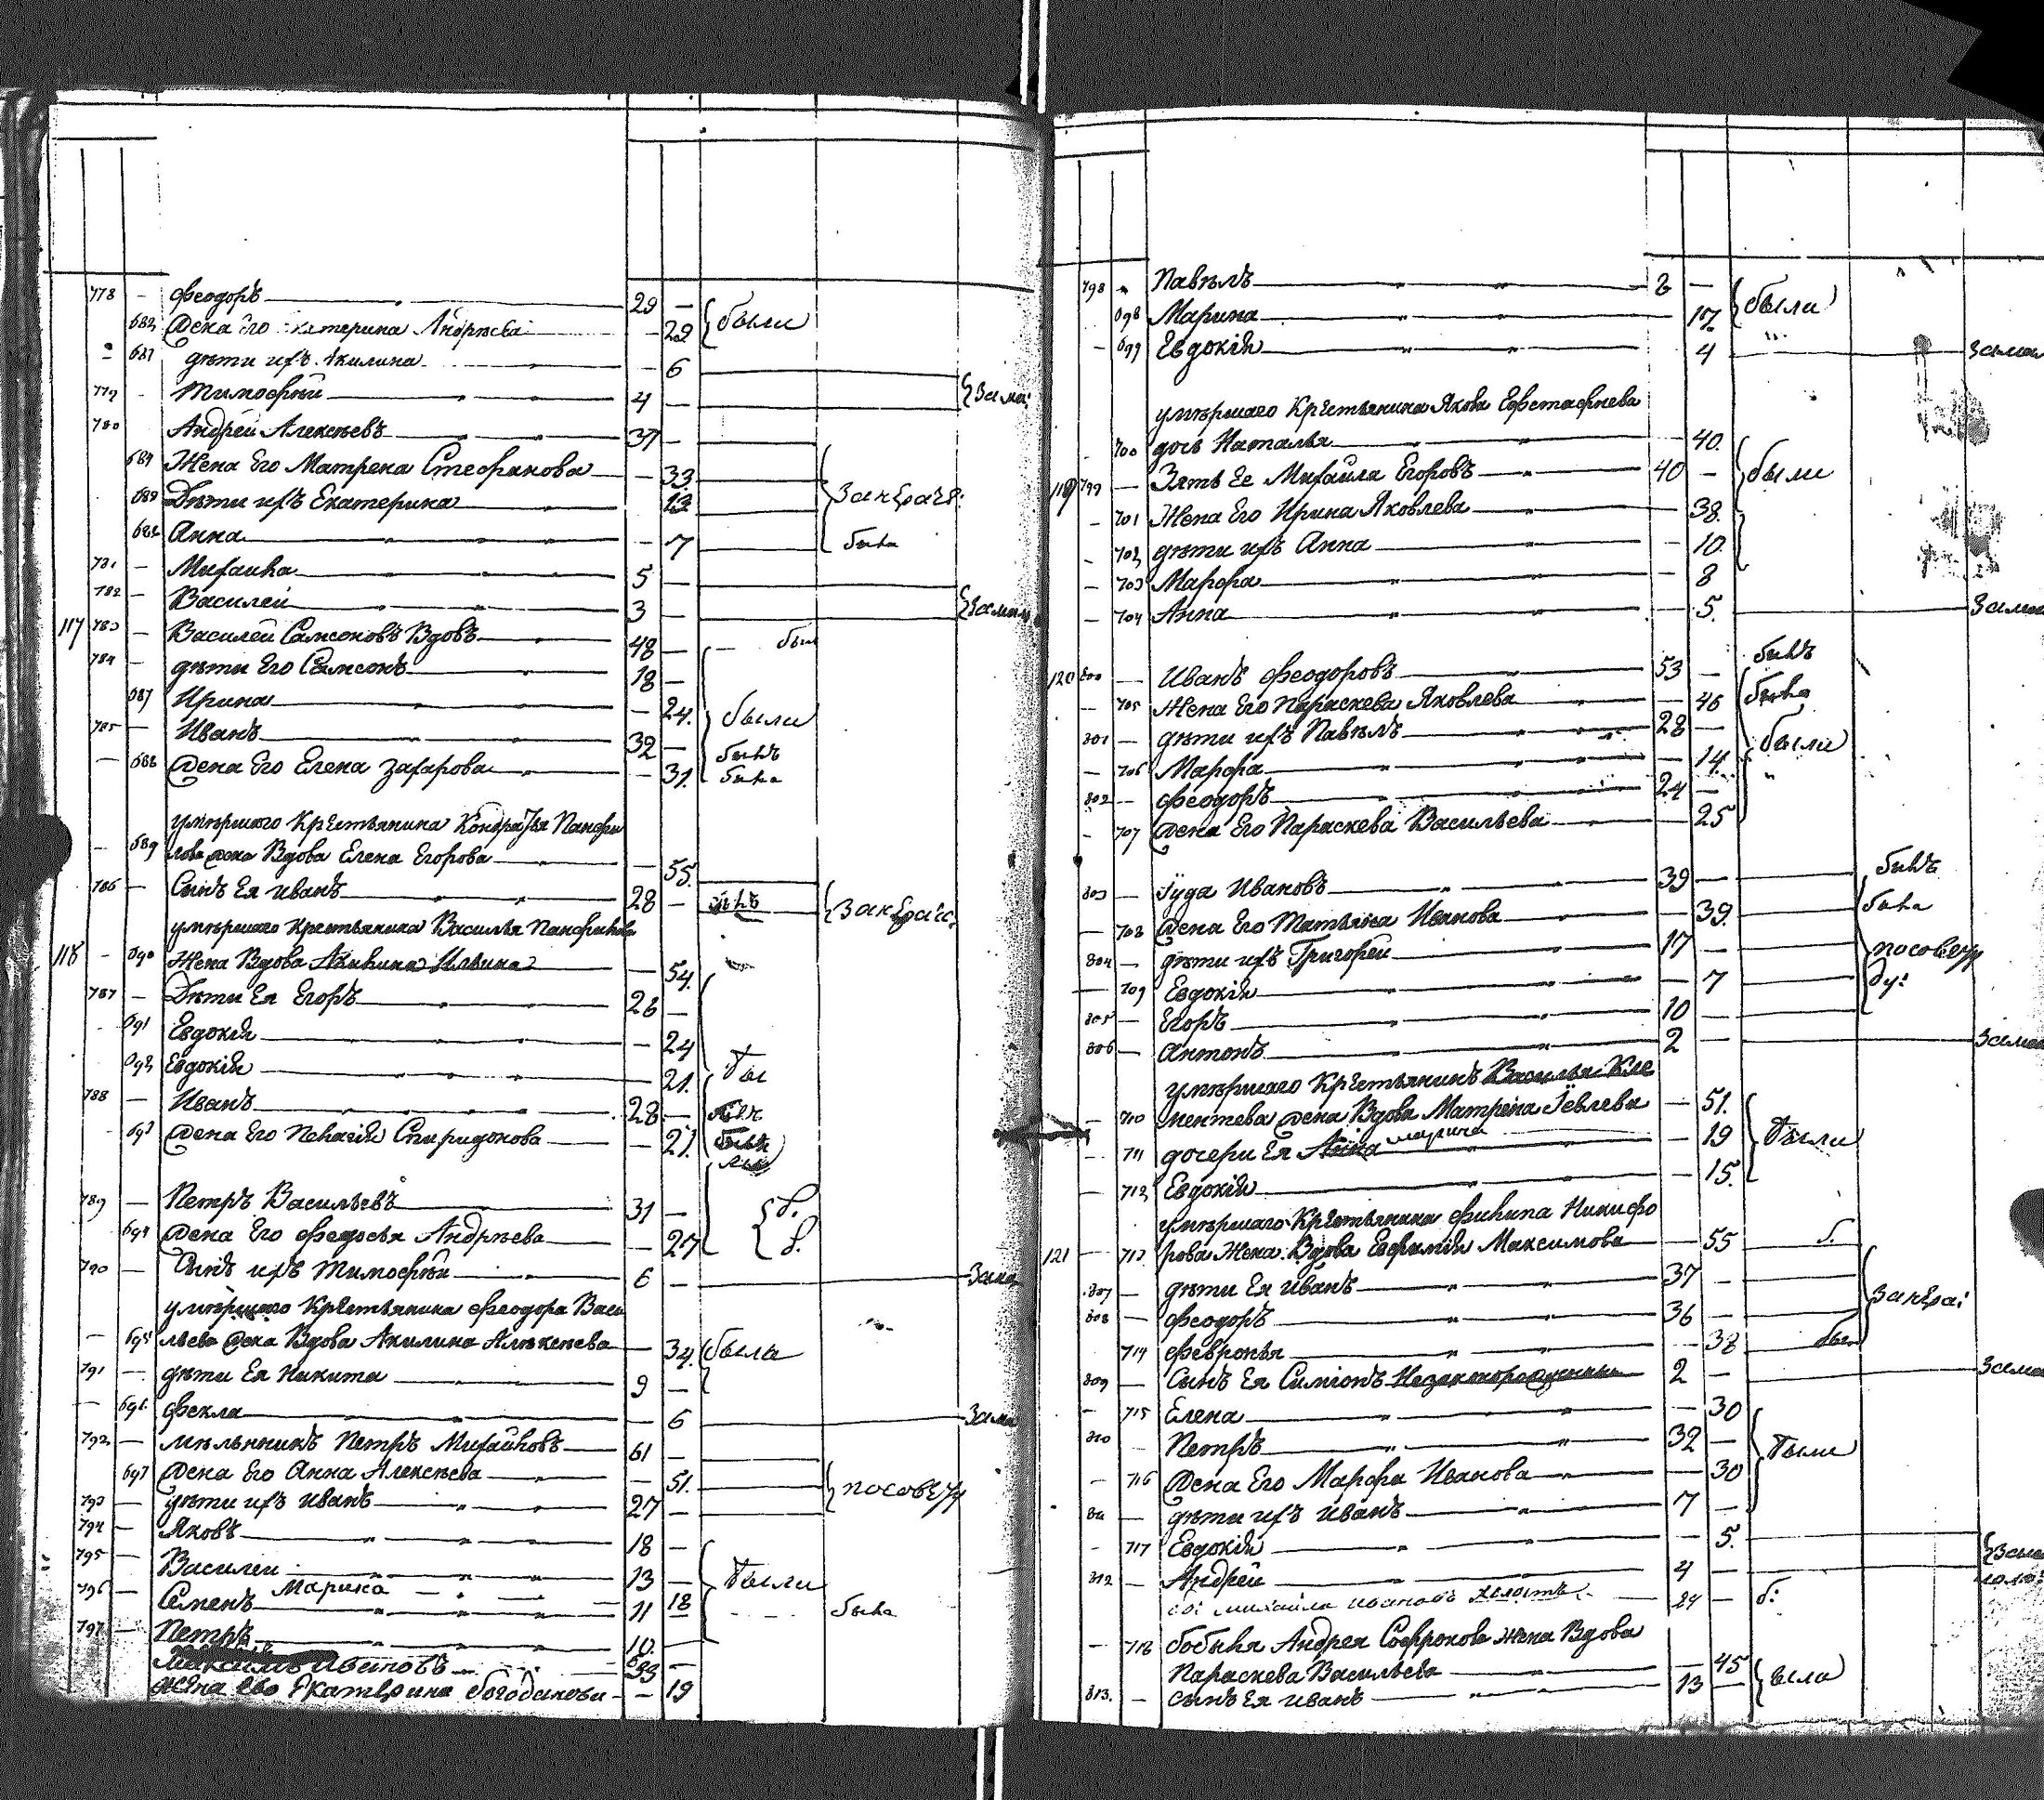 778 — Ѳеодоръ — 29 — были
682 жена Его Екатерина Андрѣева — 29
683 дѣти ихъ Акилина — 6
779 — Тимоѳѣй — 4 — зама:
780 Андрей Алексѣевъ — 37 —
684 Жена Его Матрена Стефанова — 33
685 Дѣти ихъ Екатерина — 13
686 Анна — 7 была
781 — Михаила — 5 —
782 — Василей — 3 —
117 783 — Василей Самсоновъ Вдовъ — 48 — был
784 — дѣти Его Самсонъ — 18 —
687 Ирина — 24. были
785 — Иванъ — 32 — былъ
— 688 жена Его Елена Захарова — 31. была
умершаго Крестьянина Кондратья Панфи
— 689 лова жена Вдова Елена Егорова — 55.
786 — Сынъ Ея Иванъ — 28 — былъ
умершаго Крестьянина Василья Панфилова
118 — 690 Жена Вдова Акилина Ильина — 54.
787 — Дѣти Ея Егоръ — 26 —
691 Евдокія — 24
692 Евдокія — 21. бы
788 — Иванъ — 28 —
693 жена Его Пелагія Спиридонова — 21.
789 — Петръ Васильевъ — 31 — б.
694 жена Его Ѳедосья Андрѣева — 27 б.
790 — Сынъ ихъ Тимоѳѣй — 6 — Зама
умершаго Крестьянина Ѳеодора Васи
— 695 льева жена Вдова Акилина Алексѣева — 34. была
791 — дѣти Ея Никита — 9 —
— 696 Ѳекла — 6 Зама
792 — мѣльникъ Петръ Михайловъ — 61 —
697 жена Его Анна Алексѣева — 51.
793 — дѣти ихъ Иванъ — 27 —
794 — Яковъ — 18 —
795 — Василей — 13 — были
Марина — 18 была
796 — Семенъ — 11 —
797 — Петръ — 10.
Максимъ Ивановъ — 33 —
жена Ево Екатерина — 19
798 Павѣлъ — 2 — были
698 Марина — 17.
— 699 Евдокія — 4 замал
умершаго Крестьянина Якова Евстафиева
700 дочь Наталья — 40.
119 799 — Зять Ее Михайла Егоровъ — 40 — были
— 701 Жена Его Ирина Яковлева — 38.
— 702 дѣти ихъ Анна — 10.
— 703 Марфа — 8
— 704 Анна — 5. Замал
120 800 — Иванъ Ѳеодоровъ — 53 — былъ
— 705 Жена Его Параскева Яковлева — 46 была
801 — дѣти ихъ Павѣлъ — 28 — были
— 706 Марфа — 14.
802 — Ѳеодоръ — 24 —
— 707 жена Его Параскева Васильева — 25
803 — Іуда Ивановъ — 39 — былъ
— 708 жена Его Татьяна Иванова — 39. была
804 — дѣти ихъ Григорей — 17 —
— 709 Евдокія — 7
805 — Егоръ — 10 —
806 — Антонъ — 2 — Замал
умершаго Крестьянинъ Василья Кле
— 710 ментева жена Вдова Матрена Іевлева — 51. были
711 дочери Ея Анна марина — 19
— 712 Евдокія — 15.
умершаго Крестьянина Филипа Никифо
121 — 713 рова Жена Вдова Евфимія Максимова — 55 б.
807 — дѣти Ея Иванъ — 37 —
808 — Ѳеодоръ — 36 —
714 Февронья — 38
809 — Сынъ Ея Симіонъ — 2 — Замал
— 715 Елена — 30
810 Петръ — 32 — были
— 716 жена Его Марфа Иванова — 30
811 — дѣти ихъ Иванъ — 7 —
— 717 Евдокія — 5.
812 — Андрей — 4 —
Михайла Ивановъ — 24 — б:
— 718 бобыля Андрея Софронова жена Вдова
Параскева Васильева — 45
813. — сынъ Ея Иванъ — 13 — была